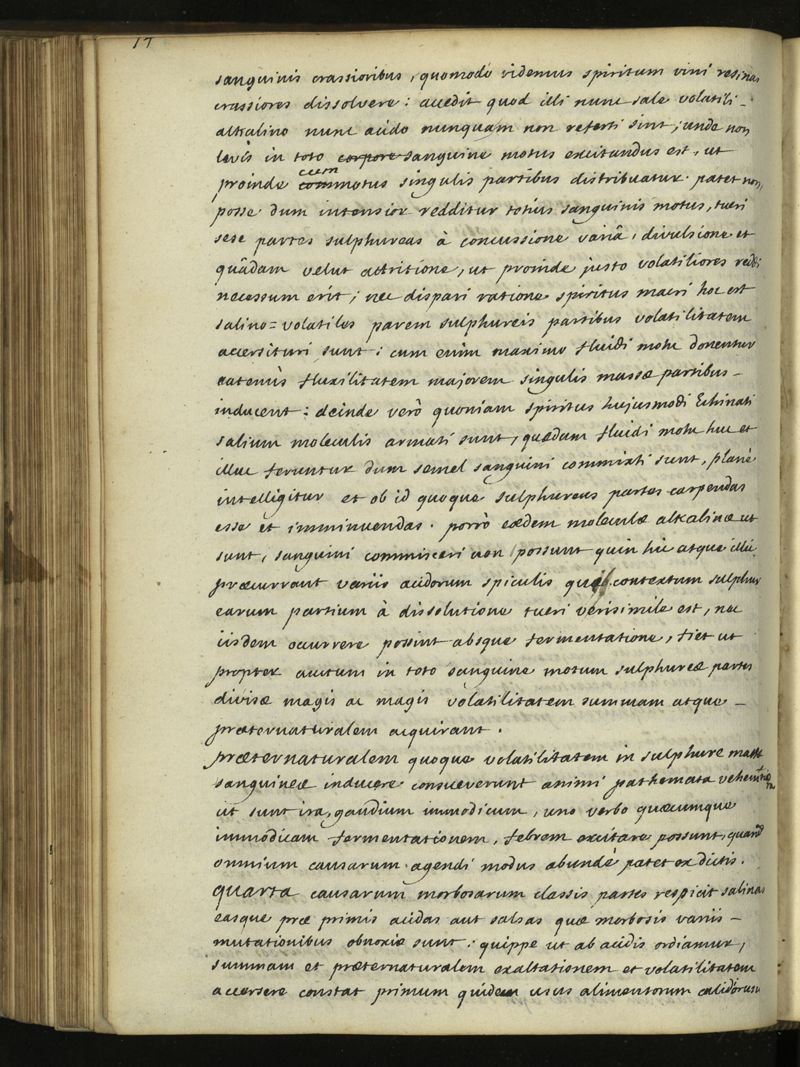 17
sanguinis crassioribus, quomodo videmus spiritum vini resinas
crassiores dissolvere: accedit quod illi nunc sale volatili -
alkalino nunc acido nunquam non referti sint; unde non
levis in toto corpore sanguine motus excitandus est, ut
proinde cum motus singulis partibus distribuatur. patet non
posse dum intensior redditur totius sanguinis motus, tueri
sese partes sulphureas à concussione variâ, divulsione et
quâdam velut attritione, ut proinde justo volatiliores reddi
necessum erit; nec dispari ratione spiritus macri hoc est
salino=volatiles parem sulphureis partibus volatilitatem
accersituri sunt: cum enim maximo fluidi motu donentur
eatenùs fluxilitatem majorem singulis massæ partibus -
inducent: deinde verò quoniam spiritus hujusmodi Echinati
salium moleculis armati sunt, quædam fluidi motu huc et
illuc feruntur dum semel sanguini commixti sunt, planè
intelligitur et ob id quoque sulphureas partes carpendas
esse et imminuendas. porrò eædem moleculæ alkalinæ ut
sunt, sanguini commisceri non possunt quin hic atque illic
præcurrant variis acidorum spiculis contextum sulphur
earum partium à dissolutione tueri verisimile est, nec
iisdem occurrere possint absque fermentatione, fiet ut
propter auctum in toto sanguine motum sulphureæ partes
divisæ magis ac magis volatilitatem summam atque -
præternaturalem acquirant.
præternaturalem quoque volatilitatem in sulphure massæ
sanguineæ inducere consueverunt animi pathemata vehementiora
ut sunt ira, gaudium immodicum, uno verbo quæcumque
immodicam fermentationem, febrem excitare possunt, quand
omnium causarum agendi modus abundè patet ex dictis.
quarta causarum morbosarum classis partes respicit salinas
easque præ primis acidas aut salsas quæ morbosis variis -
mutationibus obnoxiæ sunt: quippe ut ab acidis ordiamur,
summam et præternaturalem exaltationem et volatilitatem
accersere constat primum quidem usus alimentorum calidorum